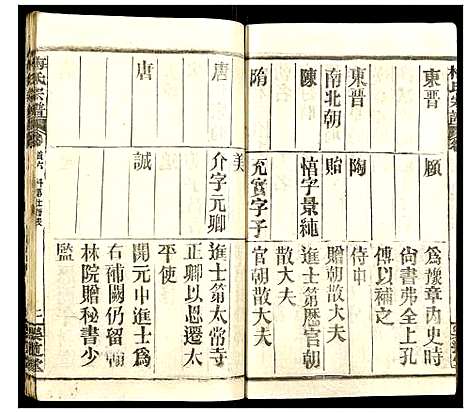 東晋
頋
為豫章内史時
尚書弗全上孔
傅以補之
東晋
陶
侍中
南北朝
貽
贈朝散大夫
陳
慔字景純
進士第歴官朝
散大夫
隋
充實字子
美
官朝散大夫
唐
介字元卿
進士第太常寺
正卿以恩遷太
平使
唐
誠
開元中進士為
右補闕仍留翰
林院贈秘書少
監
梅氏宗譜